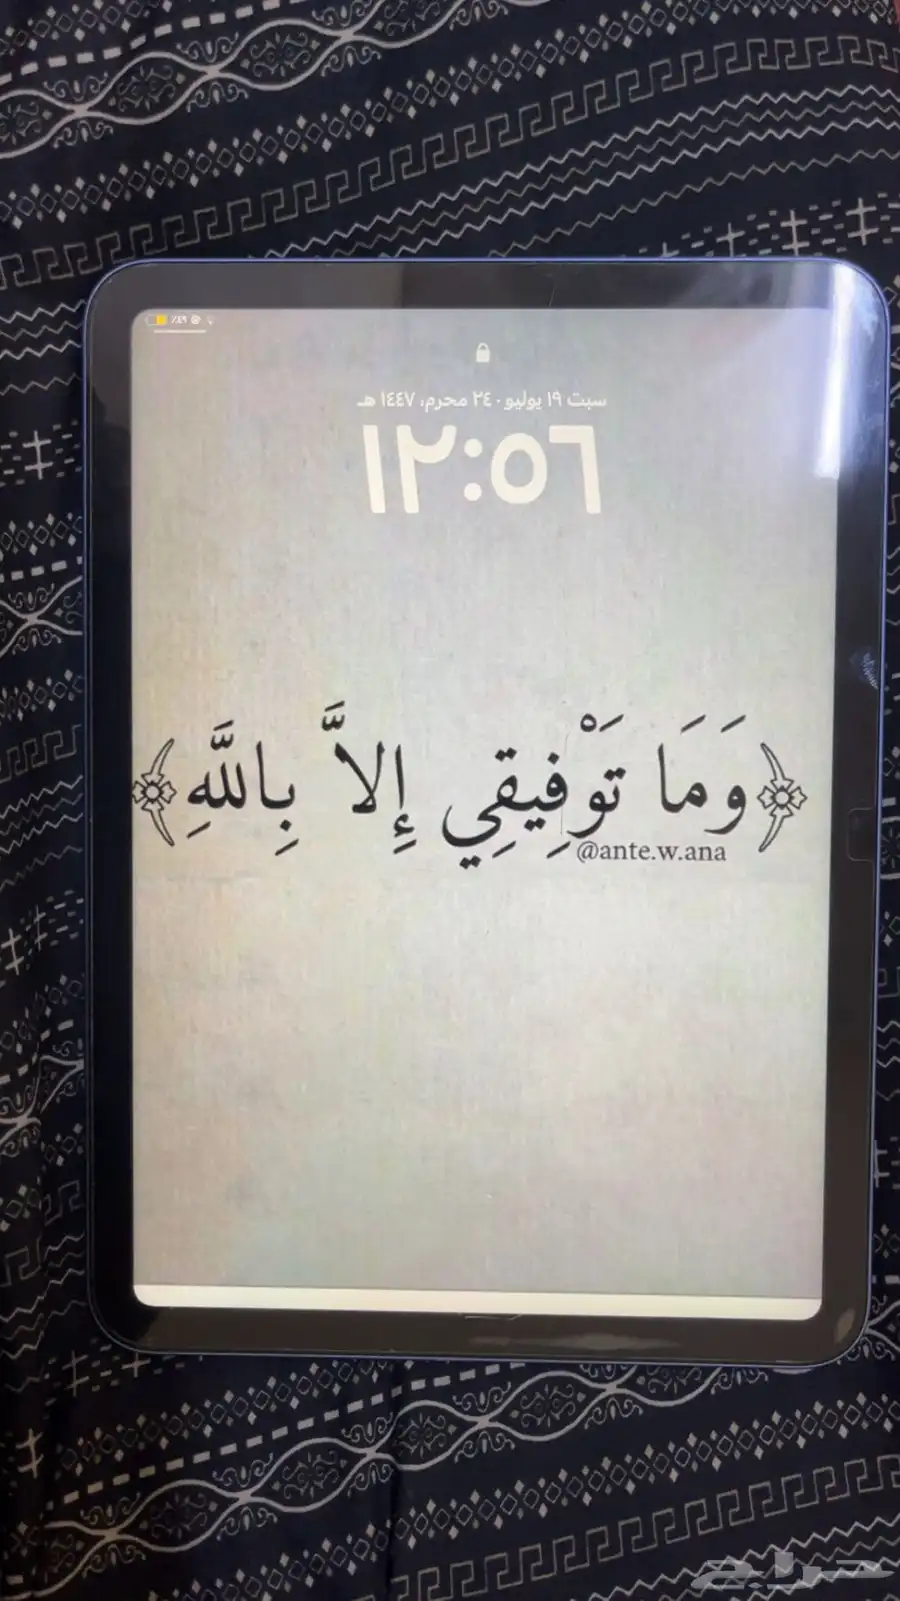 ٪٤٩
سبت ١٩ يوليو · ٢٤ محرم، ١٤٤٧ هـ
١٢:٥٦
﴿وَمَا تَوْفِيقِي إِلاَّ بِاللَّهِ﴾
@ante.w.ana
حراج